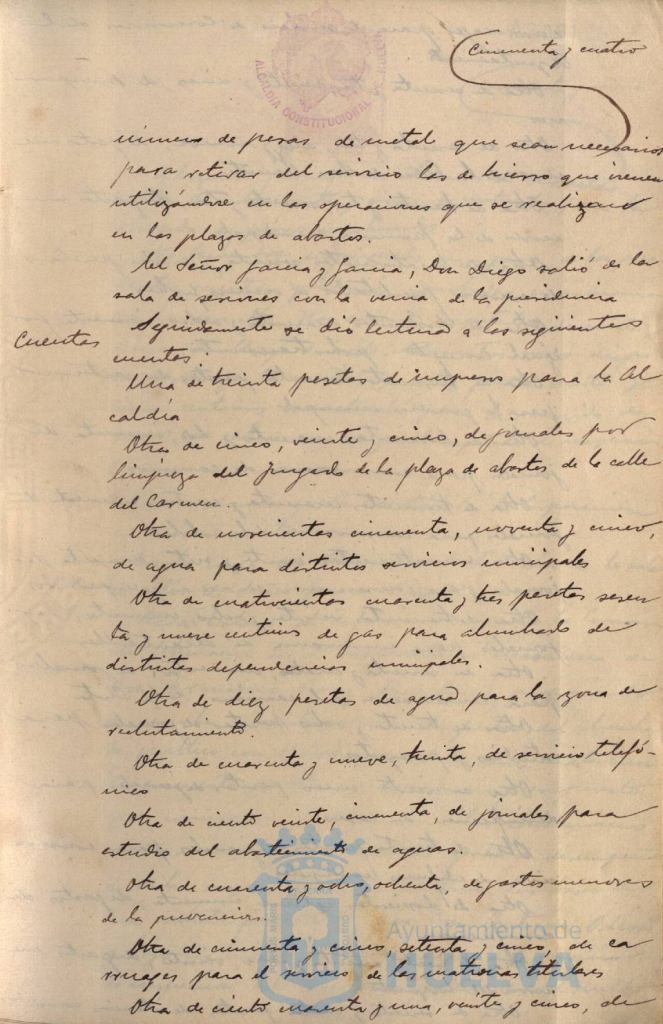 Cincuenta y cuatro
ALCALDIA CONSTITUCIONAL
número de pesas de metal que sean necesarios
para retirar del servicio las de hierro que vienen
utilizándose en las operaciones que se realizan
en las plazas de abastos.
El Señor Garcia y Garcia, Don Diego salió de la
sala de sesiones con la venia de la presidencia
Cuentas
Seguidamente se dió lectura á las siguientes
cuentas:
Una de treinta pesetas de impresos para la Al
caldía
Otra de cinco, veinte y cinco, de jornales por
limpieza del Juzgado de la plaza de abastos de la calle
del Carmen.
Otra de novecientas cincuenta, noventa y cinco,
de agua para distintos servicios municipales
Otra de cuatrocientas cuarenta y tres pesetas sesen
ta y nueve céntimos de gas para alumbrado de
distintas dependencias municipales.
Otra de diez pesetas de agua para la zona de
reclutamiento.
Otra de cuarenta y nueve, treinta, de servicio telefó-
nico
Otra de ciento veinte, cincuenta, de jornales para
estudio del abastecimiento de aguas.
Otra de cuarenta y ocho, ochenta, de gastos menores
de la prevención.
Otra de cincuenta y cinco, setenta y cinco, de ca
rruages para el servicio de las matronas titulares
Otra de ciento cuarenta y una, veinte y cinco, de
Ayuntamiento de
HUELVA